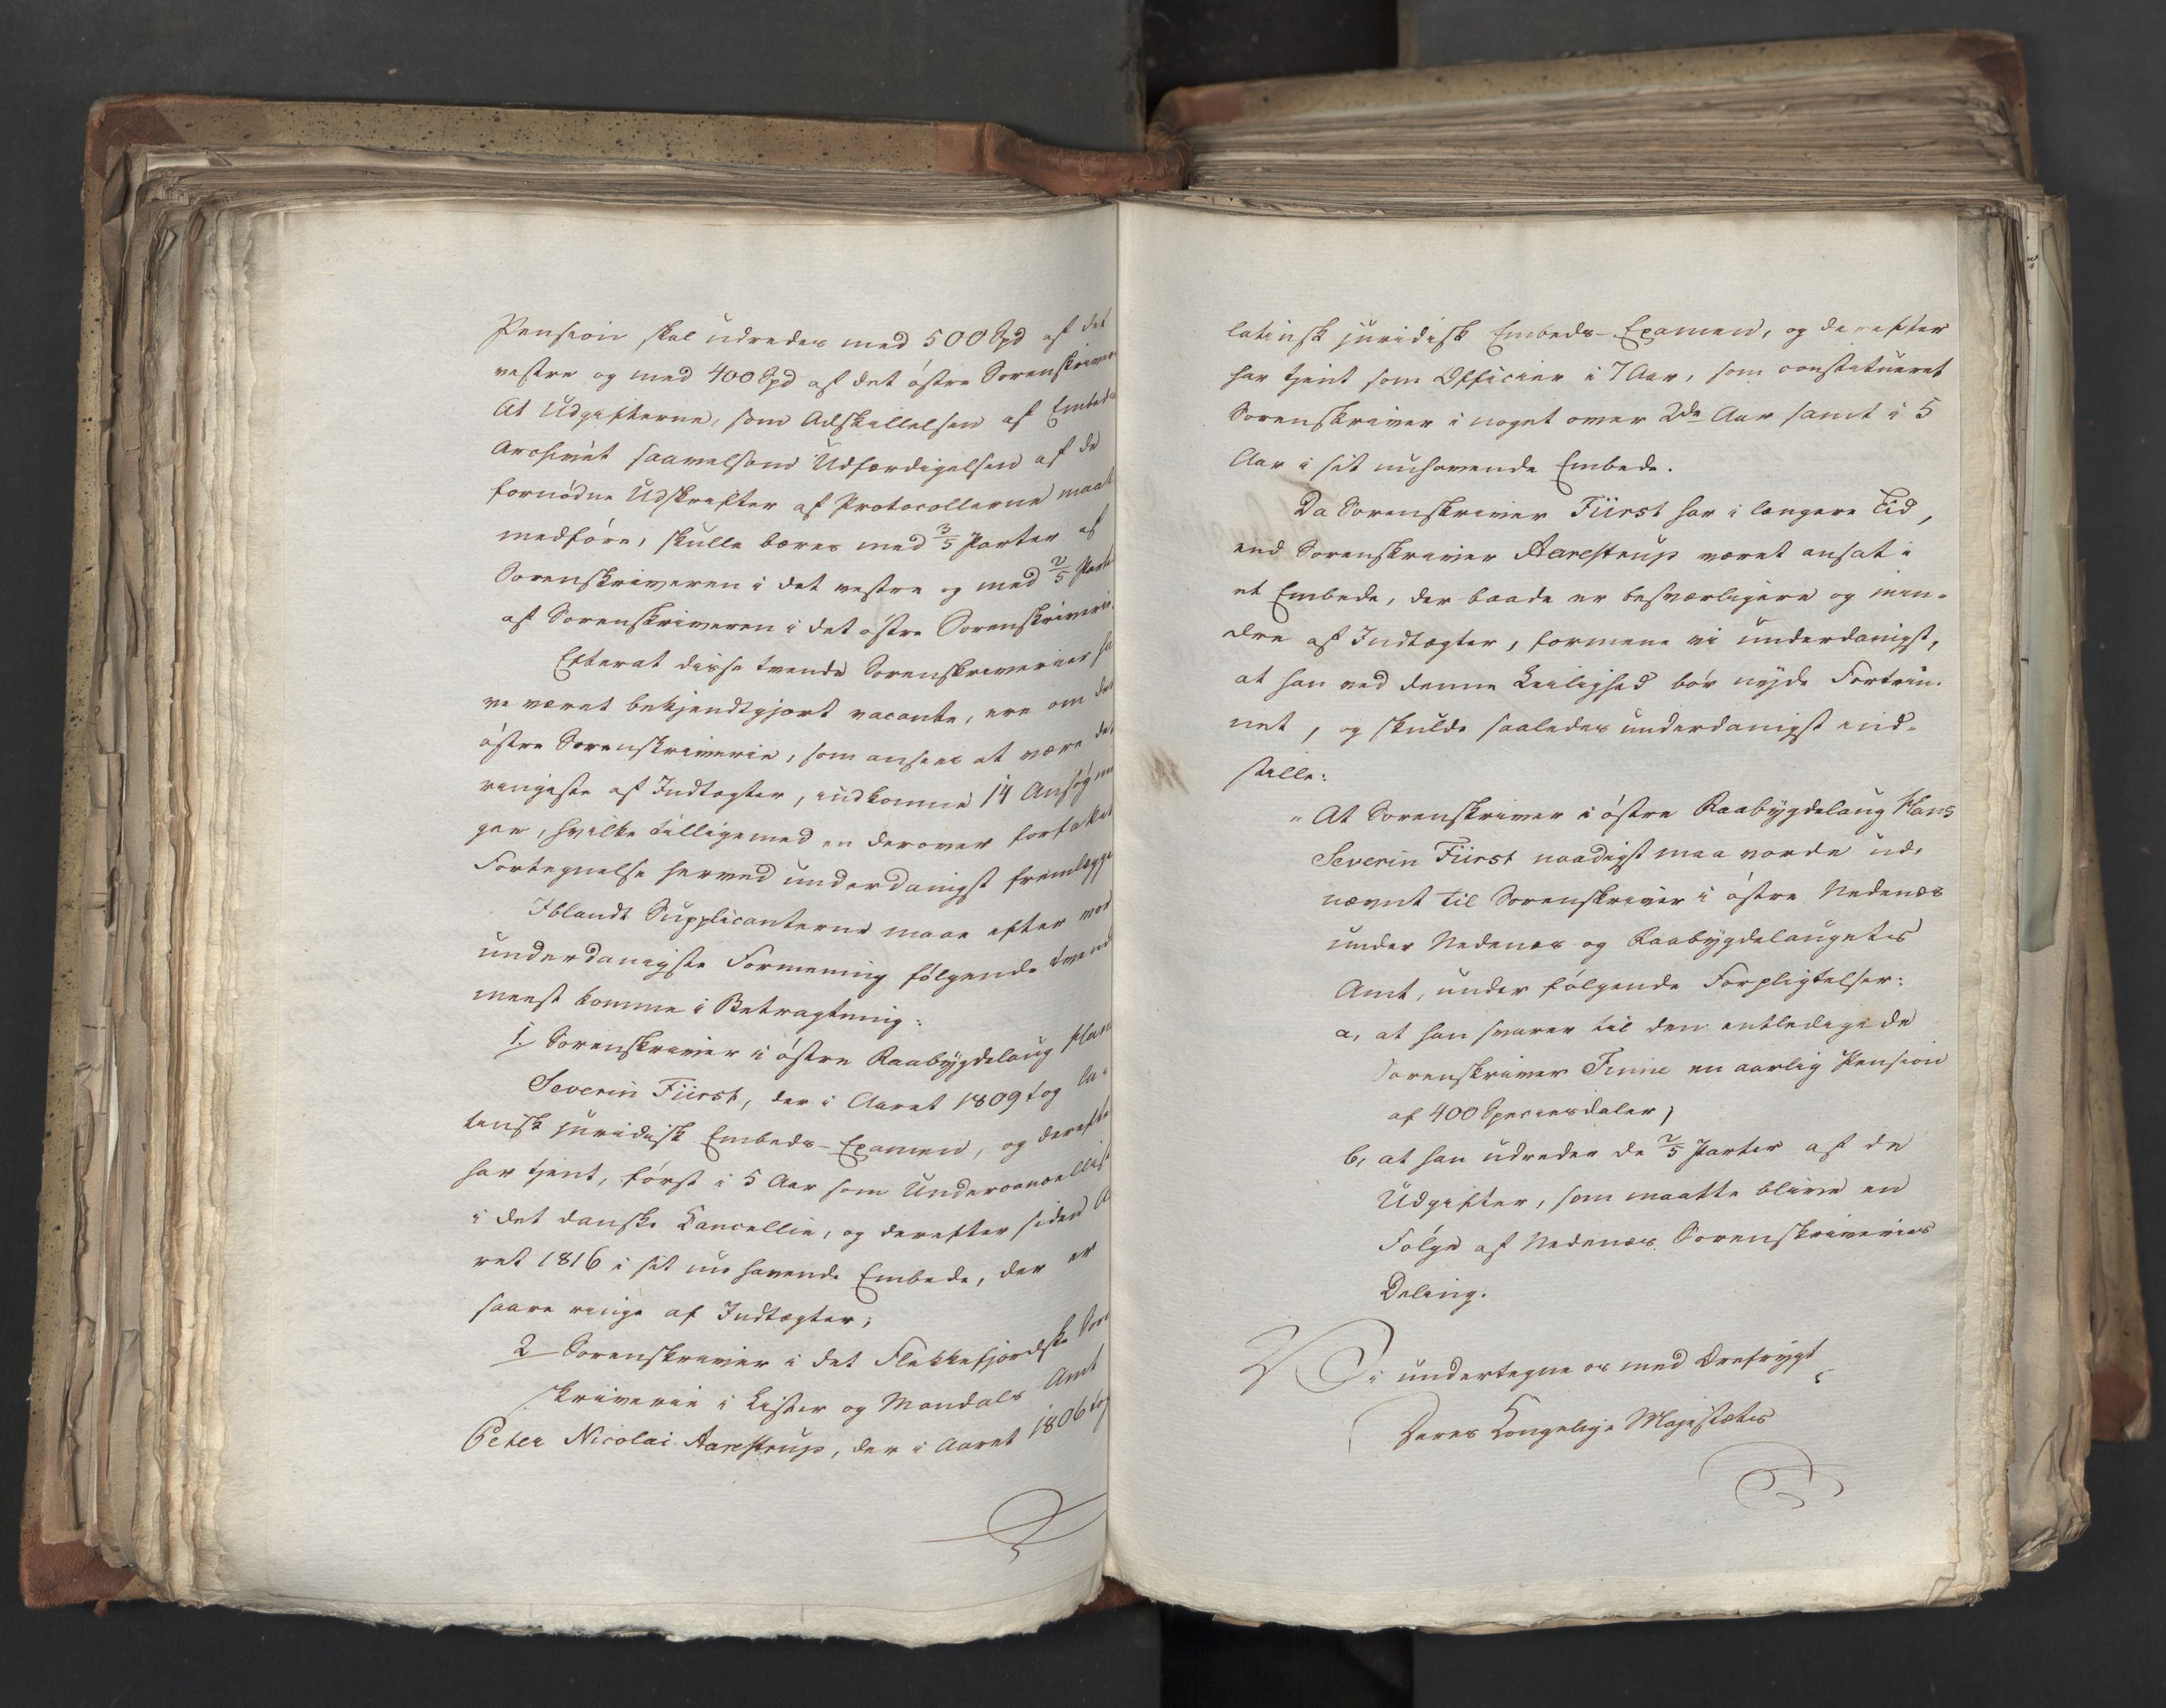 Pension skal udredes med 500 Spd af det
vestre og med 400 Spd af det östre Sorenskriver
At Udgifterne, som Adskillelsen af Embeds
Archivet saavelsom Udfærdigelsen af de
fornödne Udskrifter af Protocollerne maat
medföre, skulle bæres med 3/5 Parter af
Sorenskriveren i det vestre og med 2/5 Parte
af Sorenskriveren i det östre Sorenskriverie.
Efterat disse tvende Sorenskriverier ha
ve været bekjendtgjort vacante, ere om det
östre Sorenskriverie, som ansees at være det
ringeste af Indtægter, indkomne 14 Ansögnin
ger, hvilke tilligemed en derover forfattet
Fortegnelse herved underdanigst fremlægge
Iblandt Supplicanterne maae efter vor
underdanigste Formening fölgende tvend
meest komme i Betragtning:
1. Sorenskriver i östre Raabygdelaug Han
Severin Fürst, der i Aaret 1809 tog la-
tinsk juridisk Embeds-Examen, og derefte
har tjent, först i 5 Aar som Undercancellist
i det danske Cancellie, og derefter siden A
ret 1816 i sit nu havende Embede, der er
saare ringe af Indtægter;
2 Sorenskriver i det Flekkefjordske Sore
skriverie i Lister og Mandals Amt
Peter Nicolai Aarestrup, der i Aaret 1806 tog
latinsk juridisk Embeds-Examen, og derefter
har tjent som Officier i 7 Aar, som constitueret
Sorenskriver i noget over 2de Aar samt i 5
Aar i sit nuhavende Embede.
Da Sorenskriver Fürst har i længere Tid,
end Sorenskriver Aarestrup været ansat i
et Embede, der baade er besværligere og min-
dre af Indtægter, formene vi underdanigst,
at han ved denne Leilighed bör nyde Fortrin-
net, og skulde saaledes underdanigst ind-
stille:
"At Sorenskriver i östre Raabygdelaug Hans
Severin Fürst naadigst maa vorde ud-
nævnt til Sorenskriver i östre Nedenæs
under Nedenæs og Raabygdelaugets
Amt, under fölgende Forpligtelser:
a, at han svarer til den entledigede
Sorenskriver Finne en aarlig Pension
af 400 Speciesdaler,
b, at han udreder de 2/5 Parter af de
Udgifter, som maatte blive en
Fölge af Nedenæs Sorenskriveries
Deling.
Vi undertegne os med Ærefrygt
Deres Kongelige Majestæts